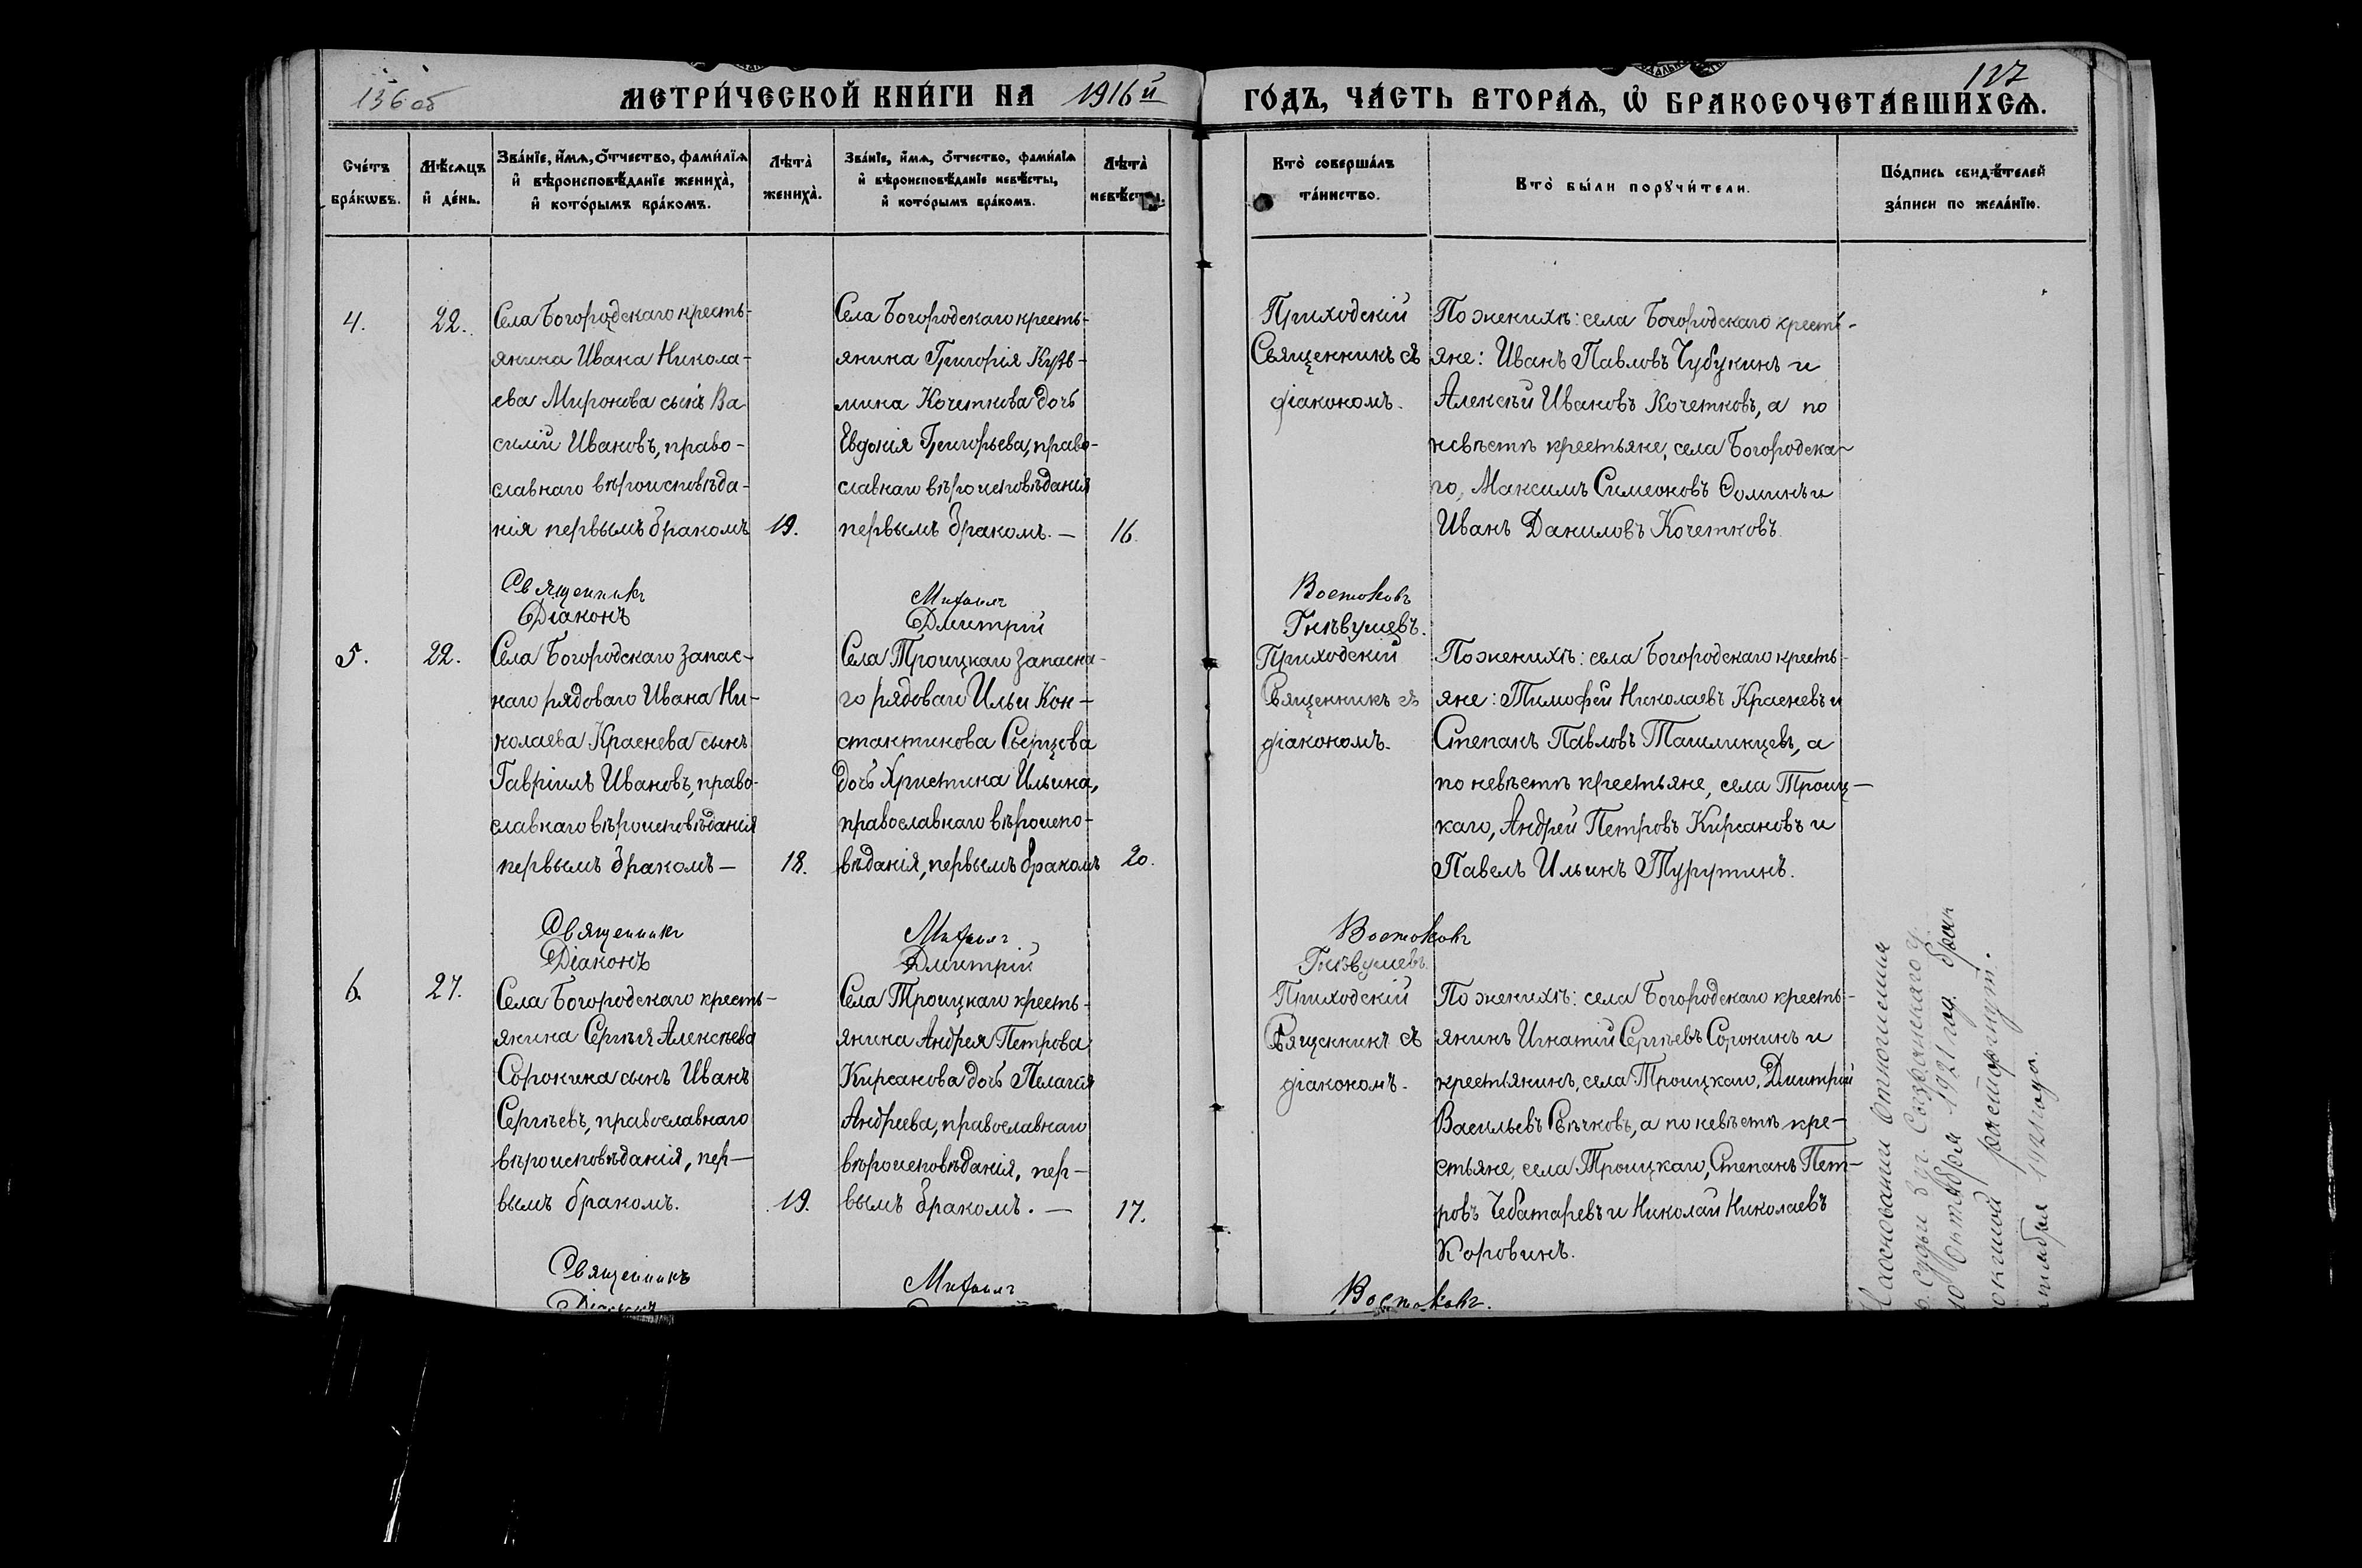 136 об
МЕТРИ́ЧЕСКОЙ КНИ́ГИ НА 1916й
ГО́ДЪ, ЧА́СТЬ ВТОРА́Ѧ, Ѡ҆ БРАКОСОЧЕТА́ВШИХСѦ.
127
Сче́тъ
бра́кѡвъ.
Мѣ́сѧцъ
и҆ де́нь.
Зва́нїе, и҆́мѧ, о҆́тчество, фами́лїѧ
и҆ вѣроисповѣ́данїе жениха̀,
и҆ кото́рымъ бра́комъ.
Лѣта̀
жениха̀.
Зва́нїе, и҆́мѧ, о҆́тчество, фами́лїѧ
и҆ вѣроисповѣ́данїе невѣ́сты,
и҆ кото́рымъ бра́комъ.
Лѣта̀
невѣ́сты.
Кто̀ соверша́лъ
та́инство.
Кто̀ бы́ли порꙋчи́тели.
По́дпись свидѣ́телей
за́писи по жела́нїю.
4.
22.
Села Богородскаго кресть-
янина Ивана Никола-
ева Миронова сынъ Ва
силій Ивановъ, право-
славнаго вѣроисповѣда-
нія первымъ бракомъ
19.
Села Богородскаго кресть-
янина Григорія Кузь-
мина Кочеткова дочь
Евдокія Григорьева, право-
славнаго вѣроисповѣданія
первымъ бракомъ. —
16.
Приходскій
Священникъ съ
діакономъ.
По женихѣ: села Богородскаго кресть-
яне: Иванъ Павловъ Чубукинъ и
Алексѣй Ивановъ Кочетковъ, а по
невѣстѣ крестьяне, села Богородска-
го, Максимъ Симеоновъ Ѳоминъ и
Иванъ Даниловъ Кочетковъ.
Священникъ Михаилъ Востоковъ
Діаконъ Дмитрій Гнѣвушевъ.
5.
22.
Села Богородскаго запас-
наго рядоваго Ивана Ни-
колаева Краснева сынъ
Гавріилъ Ивановъ, право-
славнаго вѣроисповѣданія
первымъ бракомъ —
18.
Села Троицкаго запасна-
го рядоваго Ильи Кон-
стантинова Сырцова
дочь Христина Ильина,
православнаго вѣроиспо-
вѣданія, первымъ бракомъ
20.
Приходскій
Священникъ съ
діакономъ.
По женихѣ: села Богородскаго кресть-
яне: Тимофей Николаевъ Красневъ и
Степанъ Павловъ Ташлинцевъ, а
по невѣстѣ крестьяне, села Троиц-
каго, Андрей Петровъ Кирсановъ и
Павелъ Ильинъ Турутинъ.
Священникъ Михаилъ Востоковъ
Діаконъ Дмитрій Гнѣвушевъ.
6.
27.
Села Богородскаго кресть-
янина Сергѣя Алексѣева
Сорокина сынъ Иванъ
Сергѣевъ, православнаго
вѣроисповѣданія, пер-
вымъ бракомъ.
19.
Села Троицкаго кресть-
янина Андрея Петрова
Кирсанова дочь Пелагія
Андреева, православнаго
вѣроисповѣданія, пер-
вымъ бракомъ. —
17.
Приходскій
Священникъ съ
діакономъ.
По женихѣ: села Богородскаго кресть-
янинъ Игнатій Сергѣевъ Сорокинъ и
крестьянинъ, села Троицкаго, Дмитрій
Васильевъ Свѣчковъ, а по невѣстѣ кре-
стьяне, села Троицкаго, Степанъ Пет-
ровъ Чебатаревъ и Николай Николаевъ
Коровинъ.
Священникъ Михаилъ Востоковъ.
Діаконъ
На основании отношения
судьи 3 уч. Сызранского у.
октября 1921 год. брак
расторгнут.
1921 года.